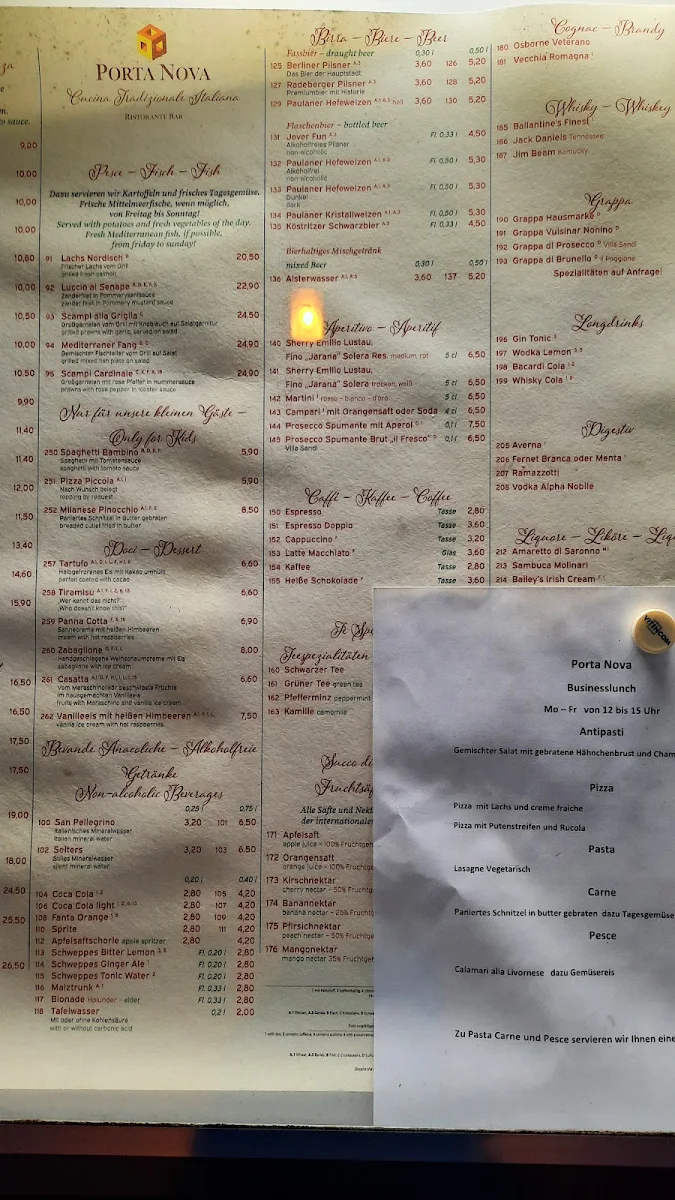 za
m.
to sauce.
9,00
10,00
10,00
10,00
10,80
10,00
10,50
10,00
10,50
9,90
11,40
11,40
12,00
11,50
13,40
14,60
15,90
16,50
16,50
17,50
17,50
19,00
18,00
24,50
25,50
26,50
PORTA NOVA
Cucina Tradizionale Italiana
RISTORANTE BAR
Pesce – Fisch – Fish
Dazu servieren wir Kartoffeln und frisches Tagesgemüse.
Frische Mittelmeerfische, wenn möglich,
von Freitag bis Sonntag!
Served with potatoes and fresh vegetables of the day.
Fresh Mediterranean fish, if possible,
from friday to sunday!
91 Lachs Nordisch 20,50
frischer Lachs vom Grill
grilled fresh salmon
92 Luccio al Senape 22,90
Zanderfilet in Pommerysenfsauce
zander fillet in Pommery mustard sauce
93 Scampi alla Griglia 24,50
Großgarnelen vom Grill mit Knoblauch auf Salatgarnitur
grilled prawns with garlic, served on salad
94 Mediterraner Fang 24,90
Gemischter Fischteller vom Grill auf Salat
grilled mixed fish plate on salad
95 Scampi Cardinale 24,90
Großgarnelen mit rosa Pfeffer in Hummersauce
prawns with rose pepper in lobster sauce
Nur für unsere kleinen Gäste –
Only for Kids
250 Spaghetti Bambino 5,90
Spaghetti mit Tomatensauce
spaghetti with tomato sauce
251 Pizza Piccola 5,90
Nach Wunsch belegt
topping by request
252 Milanese Pinocchio 8,50
Paniertes Schnitzel in Butter gebraten
breaded cutlet fried in butter
Doci – Dessert
257 Tartufo 6,60
Halbgefrorenes Eis mit Kakao umhüllt
parfait coated with cacao
258 Tiramisu 6,60
„Wer kennt das nicht?“
„Who doesn't know this?“
259 Panna Cotta 6,90
Sahnecreme mit heißen Himbeeren
cream with hot raspberries
260 Zabaglione 8,00
Handgeschlagene Weinschaumcreme mit Eis
zabaglione with ice cream
261 Casatta 6,60
Vom Maraschinolikör beschwipste Früchte
im hausgemachten Vanilleeis
fruits with Maraschino and vanilla ice cream
262 Vanilleeis mit heißen Himbeeren 7,50
vanilla ice cream with hot raspberries
Bevande Anacoliche – Alkoholfreie
Getränke
Non-alcoholic Beverages
0,25 l 0,75 l
100 San Pellegrino 3,20 101 6,50
Italienisches Mineralwasser
italian mineral water
102 Selters 3,20 103 6,50
Stilles Mineralwasser
silent mineral water
0,20 l 0,40 l
104 Coca Cola 2,80 105 4,20
106 Coca Cola light 2,80 107 4,20
108 Fanta Orange 2,80 109 4,20
110 Sprite 2,80 111 4,20
112 Apfelsaftschorle apple spritzer 2,80 4,20
113 Schweppes Bitter Lemon Fl. 0,20 l 2,80
114 Schweppes Ginger Ale Fl. 0,20 l 2,80
115 Schweppes Tonic Water Fl. 0,20 l 2,80
116 Malztrunk Fl. 0,33 l 2,80
117 Bionade Holunder - elder Fl. 0,33 l 2,80
118 Tafelwasser 0,2 l 2,00
Mit oder ohne Kohlensäure
with or without carbonic acid
Birra – Biere – Beer
Fassbier – draught beer 0,30 l 0,50 l
125 Berliner Pilsner A,3 3,60 126 5,20
Das Bier der Hauptstadt
127 Radeberger Pilsner A,3 3,60 128 5,20
Premiumbier mit Historie
129 Paulaner Hefeweizen hell 3,60 130 5,20
Flaschenbier – bottled beer
131 Jever Fun A,3 Fl. 0,33 l 4,50
Alkoholfreies Pilsner
non-alcoholic
132 Paulaner Hefeweizen Fl. 0,50 l 5,30
Alkoholfrei
non-alcoholic
133 Paulaner Hefeweizen Fl. 0,50 l 5,30
Dunkel
dark
134 Paulaner Kristallweizen Fl. 0,50 l 5,30
135 Köstritzer Schwarzbier Fl. 0,33 l 4,50
Bierhaltiges Mischgetränk
mixed Beer 0,30 l 0,50 l
136 Alsterwasser 3,60 137 5,20
Aperitivo – Aperitif
140 Sherry Emilio Lustau,
Fino „Jarana“ Solera Res. medium, rot 5 cl 6,50
141 Sherry Emilio Lustau,
Fino „Jarana“ Solera trocken, weiß 5 cl 6,50
142 Martini rosso – bianco – d'oro 5 cl 6,50
143 Campari mit Orangensaft oder Soda 4 cl 6,50
144 Prosecco Spumante mit Aperol 0,1 l 7,50
149 Prosecco Spumante Brut „il Fresco“ 0,1 l 6,50
Villa Sandi
Caffé – Kaffee – Coffee
150 Espresso Tasse 2,80
151 Espresso Doppio Tasse 3,60
152 Cappuccino F Tasse 3,20
153 Latte Macchiato F Glas 3,60
154 Kaffee Tasse 2,80
155 Heiße Schokolade F Tasse 3,60
Teespezialitäten
160 Schwarzer Tee
161 Grüner Tee green tea
162 Pfefferminz peppermint
163 Kamille camomile
Succo di
Fruchtsäf
Alle Säfte und Nekt
der internationale
171 Apfelsaft
apple juice – 100% Fruchtge
172 Orangensaft
orange juice – 100% Fruchtge
173 Kirschnektar
cherry nectar – 50% Fruchtg
174 Banannektar
banana nectar – 25% Fruchtg
175 Pfirsichnektar
peach nectar – 50% Fruchtg
176 Mangonektar
mango nectar 35% Fruchtgeh
Cognac – Brandy
180 Osborne Veterano
181 Vecchia Romagna
Whisky – Whiskey
185 Ballantine's Finest
186 Jack Daniels Tennessee
187 Jim Beam Kentucky
Grappa
190 Grappa Hausmarke
191 Grappa Vuisinar Nonino
192 Grappa di Prosecco Villa Sandi
193 Grappa di Brunello il Poggione
Spezialitäten auf Anfrage!
Longdrinks
196 Gin Tonic
197 Wodka Lemon
198 Bacardi Cola
199 Whisky Cola
Digestiv
205 Averna
206 Fernet Branca oder Menta
207 Ramazzotti
208 Vodka Alpha Nobile
Liquore – Liköre – Liq
212 Amaretto di Saronno
213 Sambuca Molinari
214 Bailey's Irish Cream
VITACOM
Porta Nova
Businesslunch
Mo – Fr von 12 bis 15 Uhr
Antipasti
Gemischter Salat mit gebratene Hähnchenbrust und Cham
Pizza
Pizza mit Lachs und creme fraiche
Pizza mit Putenstreifen und Rucola
Pasta
Lasagne Vegetarisch
Carne
Paniertes Schnitzel in butter gebraten dazu Tagesgemüse
Pesce
Calamari alla Livornese dazu Gemüsereis
Zu Pasta Carne und Pesce servieren wir Ihnen eine